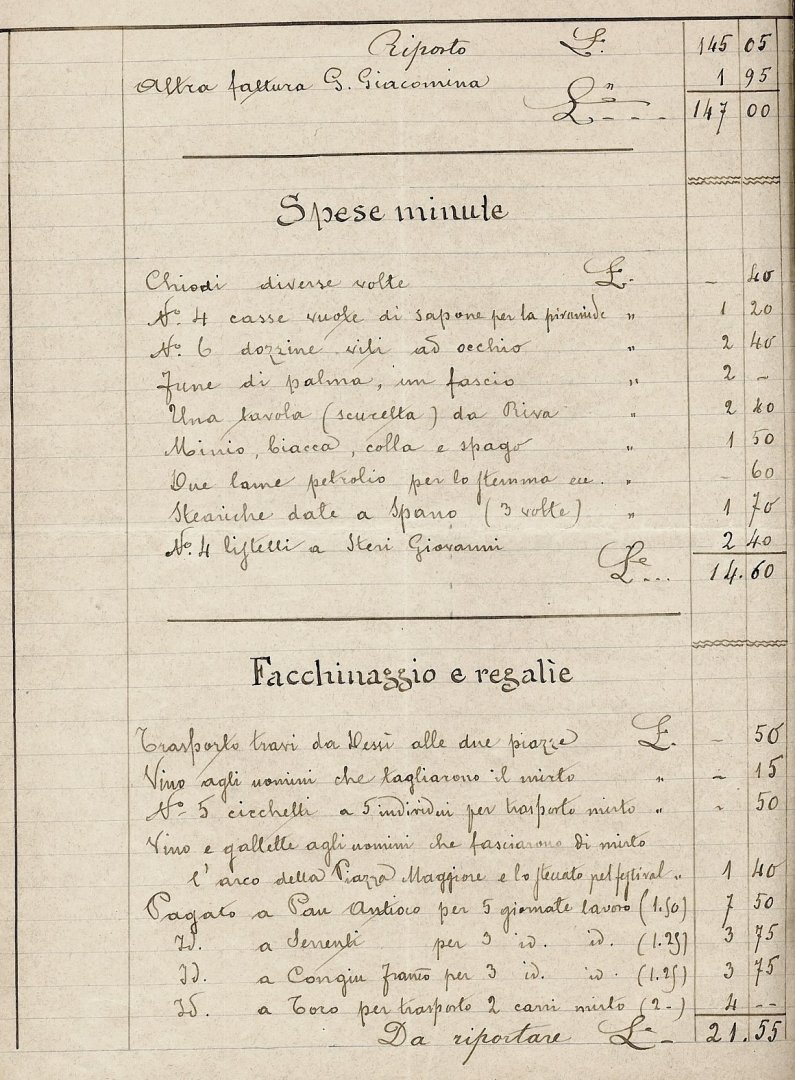 Riporto £. 145 05
Altra fattura G. Giacomina " 1 95
£ 147 00
Spese minute
Chiodi diverse volte £. - 40
No. 4 casse vuote di sapone per la piramide " 1 20
No. 6 dozzine viti ad occhio " 2 40
Fune di palma, un fascio " 2 -
Una tavola (scucetta) da Riva " 2 40
Minio, biacca, colla e spago " 1 50
Due lame petrolio per lo stemma ecc. " - 60
Steariche date a Spano (3 volte) " 1 70
No. 4 listelli a Steri Giovanni 2 40
£e... 14.60
Facchinaggio e regalìe
Trasporto travi da Dessì alle due piazze £. - 50
Vino agli uomini che tagliarono il mirto " - 15
No. 5 cicchetti a 5 individui per trasporto mirto " - 50
Vino e gallette agli uomini che fasciarono di mirto
l'arco della Piazza Maggiore e lo steccato pel festival " 1 40
Pagato a Pau Antioco per 5 giornate lavoro (1.50) 7 50
Id. a Serrenti per 3 id. id. (1.25) 3 75
Id. a Congiu Franco per 3 id. id. (1.25) 3 75
Id. a Toro per trasporto 2 carri mirto (2-) 4 --
Da riportare £ 21.55